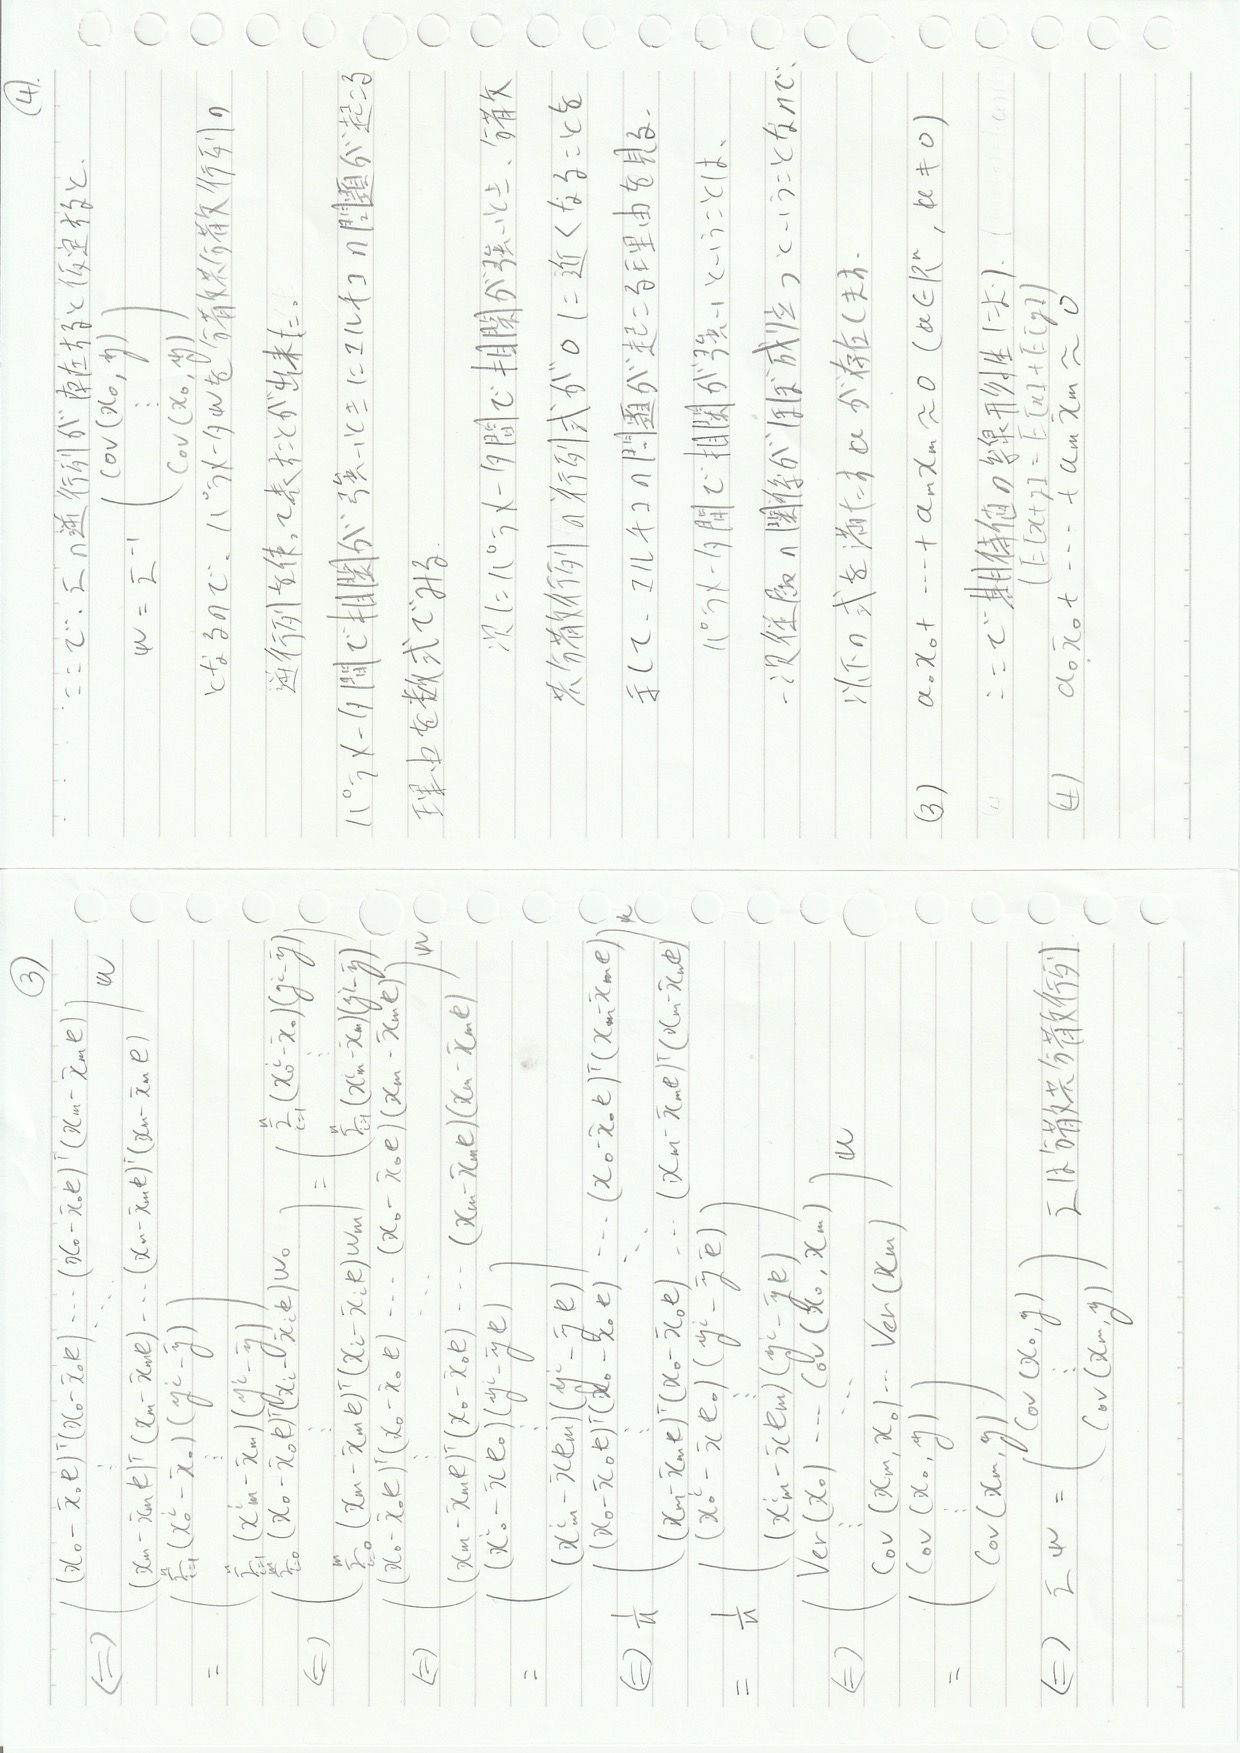 ③
⇔ ( (x₀ - x̄₀e)ᵀ(x₀ - x̄₀e) ... (x₀ - x̄₀e)ᵀ(xm - x̄m e)
⋮ ⋱
(xm - x̄m e)ᵀ(xm - x̄m e) ... (xm - x̄m e)ᵀ(xm - x̄m e) ) w
= ( Σⁿᵢ₌₁ (x₀ⁱ - x̄₀)(yⁱ - ȳ)
⋮
Σⁿᵢ₌₁ (xmⁱ - x̄m)(yⁱ - ȳ) )
⇔ ( Σᵐᵢ₌₀ (x₀ - x̄₀e)ᵀ(xᵢ - x̄ᵢe)w₀ ⋮ Σᵐᵢ₌₀ (xm - x̄m e)ᵀ(xᵢ - x̄ᵢe)wm ) = ( Σⁿᵢ₌₁ (x₀ⁱ - x̄₀)(yⁱ - ȳ) ⋮ Σⁿᵢ₌₁ (xmⁱ - x̄m)(yⁱ - ȳ) )
⇔ ( (x₀ - x̄₀e)ᵀ(x₀ - x̄₀e) ... (x₀ - x̄₀e)(xm - x̄m e)
⋮ ⋱
(xm - x̄m e)ᵀ(x₀ - x̄₀e) ... (xm - x̄m e)(xm - x̄m e) ) w
= ( (x₀ⁱ - x̄e₀)(yⁱ - ȳe)
⋮
(xmⁱ - x̄em)(yⁱ - ȳe) )
⇔ 1/n ( (x₀ - x̄₀e)ᵀ(x₀ - x̄₀e) ... (x₀ - x̄₀e)ᵀ(xm - x̄m e)
⋮ ⋱
(xm - x̄m e)ᵀ(x₀ - x̄₀e) ... (xm - x̄m e)ᵀ(xm - x̄m e) ) w
= 1/n ( (x₀ⁱ - x̄e₀)(yⁱ - ȳe)
⋮
(xmⁱ - x̄em)(yⁱ - ȳe) )
⇔ ( Ver(x₀) ... Cov(x₀, xm)
⋮ ⋱
Cov(xm, x₀) ... Ver(xm) ) w
= ( Cov(x₀, y)
⋮
Cov(xm, y) )
⇔ Σw = ( Cov(x₀, y) ⋮ Cov(xm, y) ) Σは分散共分散行列
④
ここで、Σの逆行列が存在すると仮定すると、
w = Σ⁻¹ ( Cov(x₀, y) ⋮ Cov(x₀, y) )
となるので、パラメータwを分散共分散行列の
逆行列を使って表すことが出来た。
パラメータ間で相関が強いときにマルチコの問題が起こる
理由を数式でみる。
次にパラメータ間で相関が強いとき、分散
共分散行列の行列式が0に近くなることを
示して、マルチコの問題が起こる理由を見る。
パラメータ間で相関が強いということは、
一次従属の関係がほぼ成り立つということなので、
以下の式を満たすaが存在します。
(3) a₀x₀ + ... + amxm ≈ 0 (a ∈ Rⁿ, a ≠ 0)
ここで期待値の線形性により、
(E[x+y] = E[x] + E[y])
(4) a₀x̄₀ + ... + amx̄m ≈ 0